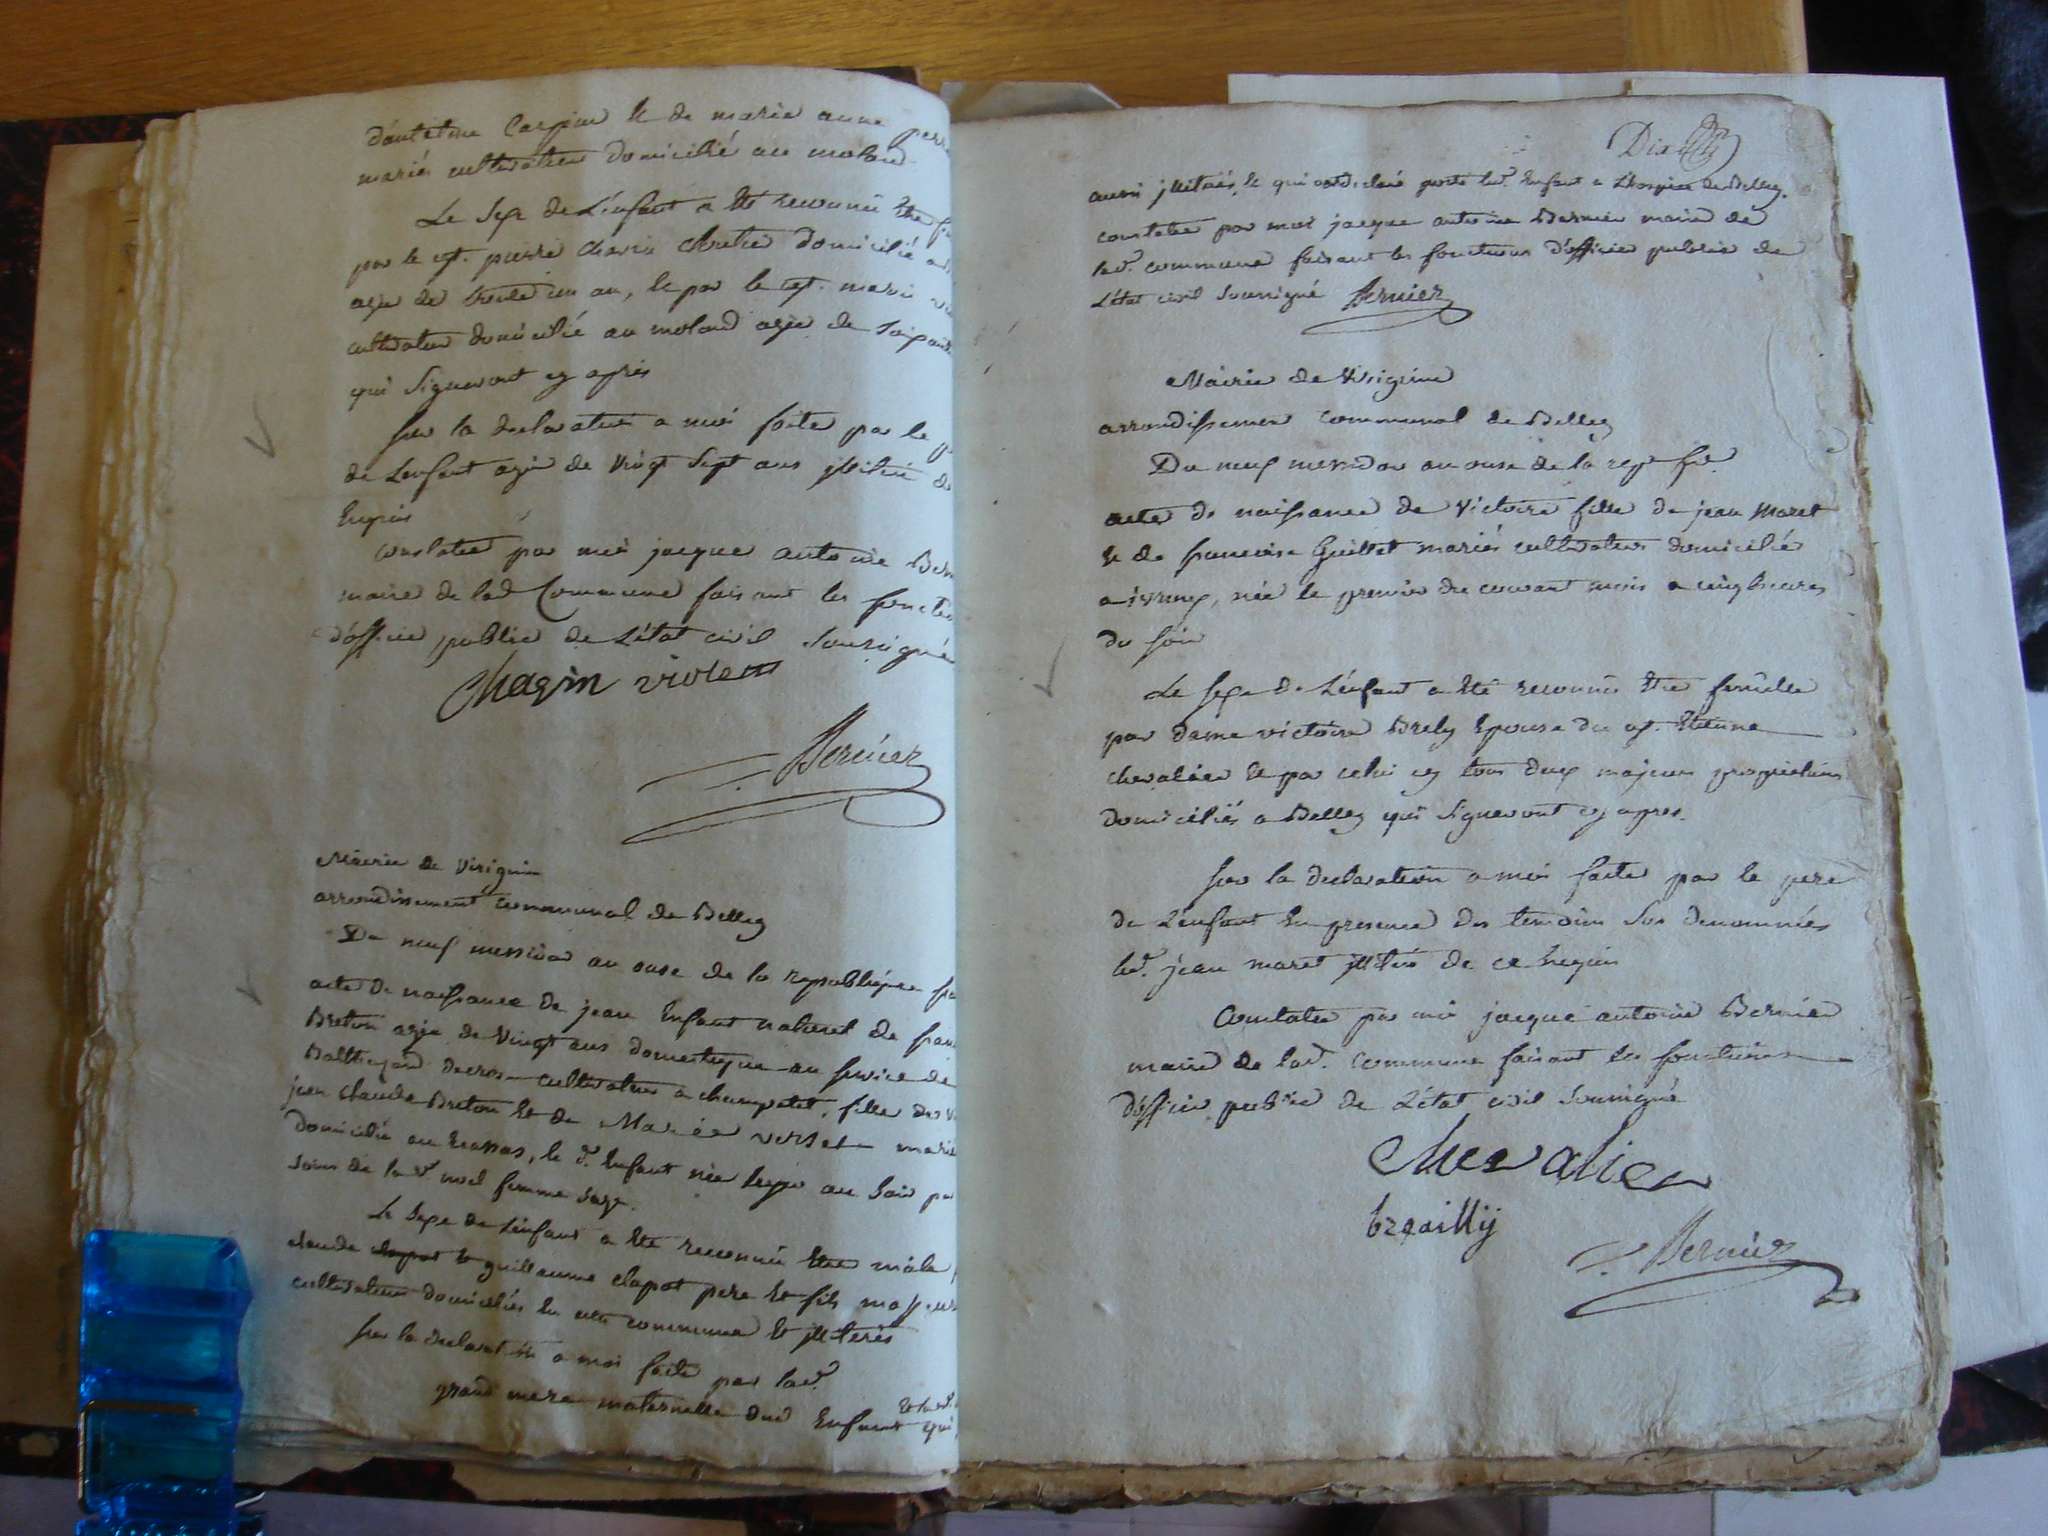 d'antelme Carpin & de marie anne perr
mariés cultivateur domicilié au moland
Le Sexe de L'enfant a été reconnu être
par le cyt. pierre domicilié
agée de trente un an, & par le cyt. marin
cultivateur domicilié au moland agée de Soixante
qui Signeront cy après
sur la declaration a moi faite par le
de L'enfant agée de Vingt Sept ans illitéré de
requis
constatée par moi jacque antoine Bern
maire de lad Commune faisant les fonctio
d'officier public de L'état civil soussigné
Chagin violett
Bernier
Mairie de Virignin
arrondissement communal de Belley
Du neuf messidor an onze de la republique
acte de naissance de jean Enfant naturel de
Breton agée de Vingt ans domestique au service de
Balthazard decros cultivateur a champetel, fille de
jean claude Breton et de Marie verset marié
domicilié au, le d. Enfant née au soir par
soins de la V.e femme sage.
Le Sexe de L'enfant a été reconnu être mâle
claude guillaume clapot pere & fils majeurs
cultivateur domiciliés en cette commune & illiterés
sur la declaration a moi faite par lad.
grand mere maternelle dud Enfant qui
Dix
aussi illitérés, & qui ont declaré porté led. Enfant a L'hospice de Belley.
constatée par moi jacque antoine Bernier maire de
lad. commune faisant les fonctions d'officier public de
L'état civil soussigné Bernier
Mairie de Virignin
arrondissement communal de Belley
Du neuf messidor an onze de la rep. fse.
acte de naissance de Victoire fille de jean Maret
& de francoise Guillet mariés cultivateurs domicilié
a, née le premier du courant mois a cinq heures
du soir
Le sexe de L'enfant a été reconnu être femelle
par dame victoire Brely Epouse du cyt. Etienne
chevalier & par celui cy tous deux majeurs proprietaires
domiciliés a Belley qui signeront cy apres.
sur la declaration a moi faite par le pere
de L'enfant En presence des temoins sus denommées
led. jean maret illitéré de ce requis
Constatée par moi jacque antoine Bernier
maire de lad. commune faisant les fonctions
d'officier public de L'état civil soussigné
Chevalier
breailly
Bernier